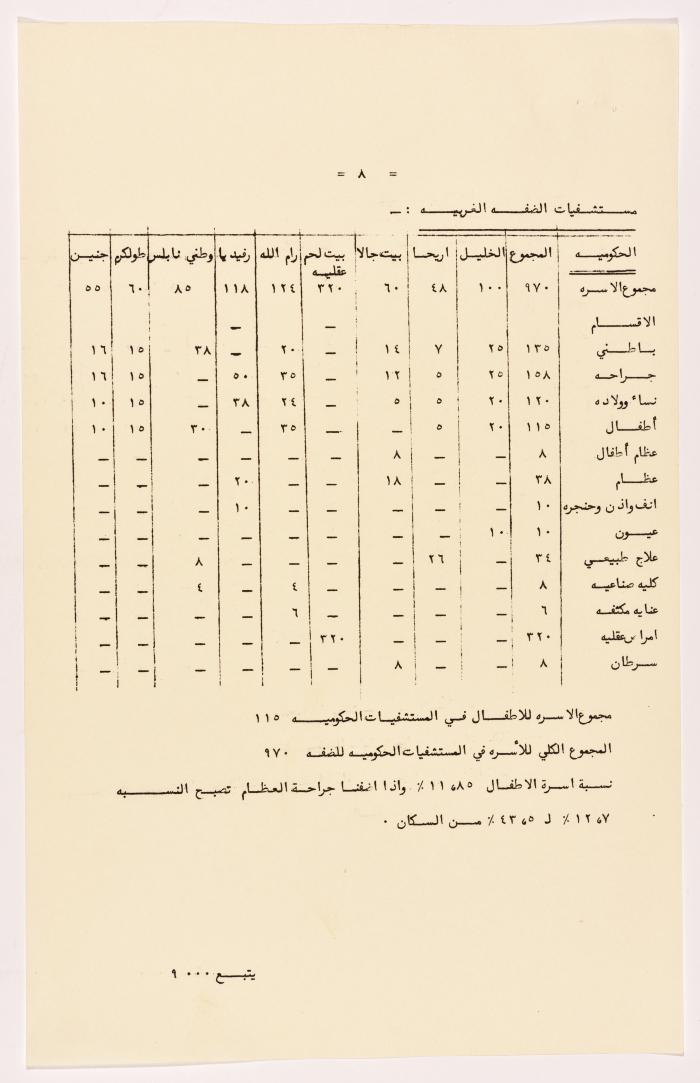 = ٨ =
مستشفيات الضفه الغربيه : ـ
الحكوميه المجموع الخليل اريحا بيت جالا بيت لحم عقليه رام الله رفيديا وطني نابلس طولكرم جنين
مجموع الاسره ٩٧٠ ١٠٠ ٤٨ ٦٠ ٣٢٠ ١٢٤ ١١٨ ٨٥ ٦٠ ٥٥
الاقسام — —
باطني ١٣٥ ٢٥ ٧ ١٤ — ٢٠ — ٣٨ ١٥ ١٦
جراحه ١٥٨ ٢٥ ٥ ١٢ — ٣٥ ٥٠ — ١٥ ١٦
نساء وولاده ١٢٠ ٢٠ ٥ ٥ — ٢٤ ٣٨ — ١٥ ١٠
أطفال ١١٥ ٢٠ ٥ — — ٣٥ — ٣٠ ١٥ ١٠
عظام أطفال ٨ — — ٨ — — — — — —
عظام ٣٨ — — ١٨ — — ٢٠ — — —
انف واذن وحنجره ١٠ — — — — — ١٠ — — —
عيون ١٠ ١٠ — — — — — — — —
علاج طبيعي ٣٤ — ٢٦ — — — — ٨ — —
كليه صناعيه ٨ — — — — ٤ — ٤ — —
عنايه مكثفه ٦ — — — — ٦ — — — —
امراض عقليه ٣٢٠ — — — ٣٢٠ — — — — —
سرطان ٨ — — ٨ — — — — — —
مجموع الاسره للاطفال في المستشفيات الحكوميه ١١٥
المجموع الكلي للأسره في المستشفيات الحكوميه للضفه ٩٧٠
نسبة اسرة الاطفال ١١،٨٥ ٪ واذا اضفنا جراحة العظام تصبح النسبه
١٢،٧ ٪ لـ ٤٣،٥ ٪ من السكان ٠
يتبع ٠٠٠ ٩